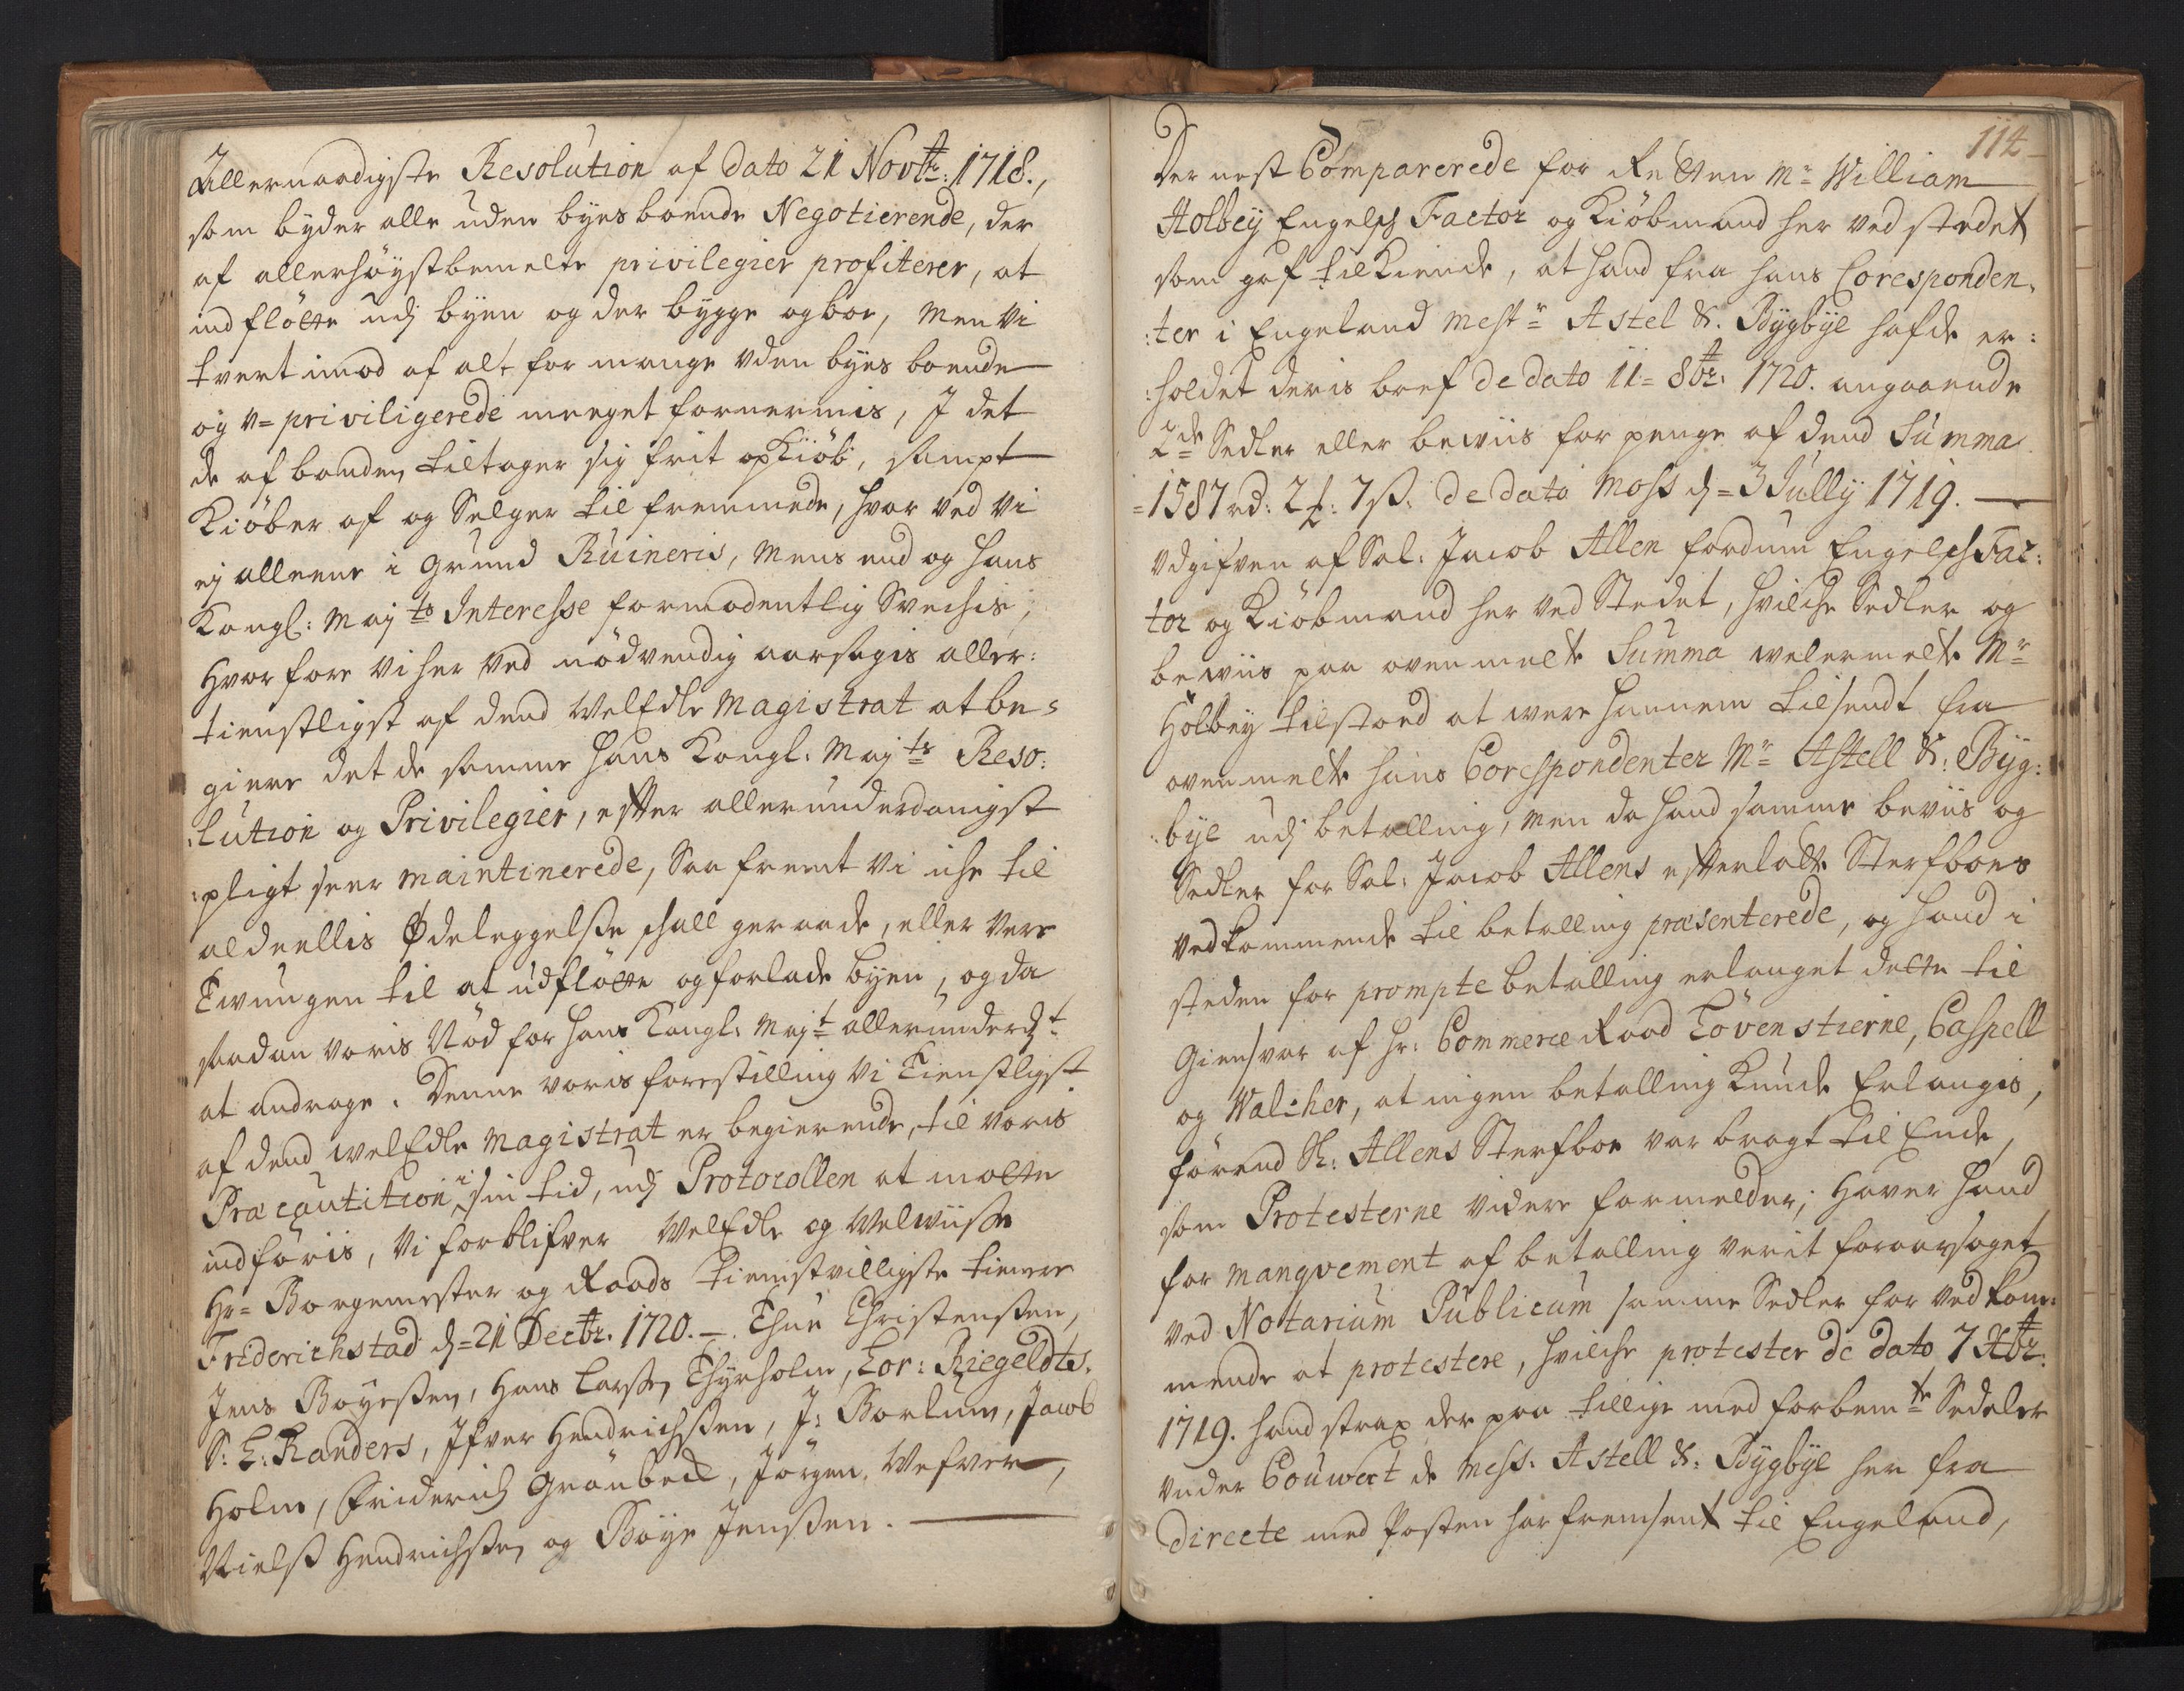 Allernaadigste Resolution af dato 21 Novbr: 1718.,
som byder alle uden byes boende Negotierende, der
af allerhöystbemelte privilegier profiterer, at
ind flötte udj byen og der bygge og boe, men vi
tvert imod af alt for mange uden byes boende
og u=priviligerede meeget fornermis, I det
de af bonden tiltager sig frit opKiöb, sampt
Kiöber af og Selger til fremmede, hvor ved vi
ej alleene i grund Ruineris, mens end og hans
Kongl: Majts Interesse formodentlig Svechis,
Hvorfore vi her ved nödvendig aarsagis aller:
tienstligst af dend WelEdle Magistrat at be=
giere det de samme hans Kongl: Majts Reso:
:lution og Privilegier, efter allerunderdanigst
:pligt seer maintinerede, Saa fremt vi iche til
aldeellis Ødeleggelse schall geraade, eller vere
Tvungen til at udflötte og forlade byen, og da
saadan voris Nöd for hans Kongl: Majt allerunderdt
at andrage. Denne voris forestilling vi Tienstligst
af dend WelEdle Magistrat er begierende, til voris
Præcautition i sin tid, udj Protocollen at motte
indföris, Vi forblifver WelEdle og Welviise
Hr= Borgemester og Raads tienistvilligste tienere
Friderichstad d=21 Decbr. 1720.—. Thue Christensen,
Jens Böyesen, Hans Larsen Thyrholm, Lor: Riegeldts.
S: L: Randers, Ifver Hendrichsen, J: Borlum, Jacob
Holm, Friderich Grönbech, Jörgen Wefver,
Niels Hendrichsen og Böye Jensen.
114
Der nest Comparerede for Retten Mr William
Holbey Engelsch Factor og Kiöbmand her ved stedet
som gaf tilkiende, at hand fra hans Coresponden,
:ter i Engeland Mestr Astel &. Bygbye hafde er:
:holdet deris bref de dato 11= 8br: 1720. angaaende
2de Sedler eller beviis for penge af dend Summa
=1587 rd: 2 : 7 ß: de dato Moss d=3 Jully 1719.—
Udgifven af Sal: Jacob Allen fordum Engelsch Fac:
tor og Kiöbmand her ved Stedet, hvilche Sedler og
beviis paa ovenmelte Summa welermelte Mr
Holbey tilstoed at were hannem tilsendt fra
ovenmelte hans Corespondenter Mr Astell &: Byg:
:bye udj betalling, men da hand samme beviis og
Sedler for Sal: Jacob Allens efterlatte Sterfboes
vedkommende til betalling præsenterede, og hand i
steden for prompte betalling erlanget dette til
Giensvar af Hr: Commerce Raad Lövenstierne, Caspell
og Walcher, at ingen betalling Kunde Erlangis,
förend Sl: Allens Sterfboe var bragt til Ende,
som Protesterne videre formelder; Haver hand
for manqvement af betalling verit foraarsaget
ved Notarium Publicum samme Sedler for vedkom:
mende at protestere, hvilche protester de dato 7 Xbr:
1719. hand strax der paa tillige med forbemte Sedeler
under Couwert de Mess. Astell &: Bygbye her fra
directe med Posten har fremsent til Engeland,